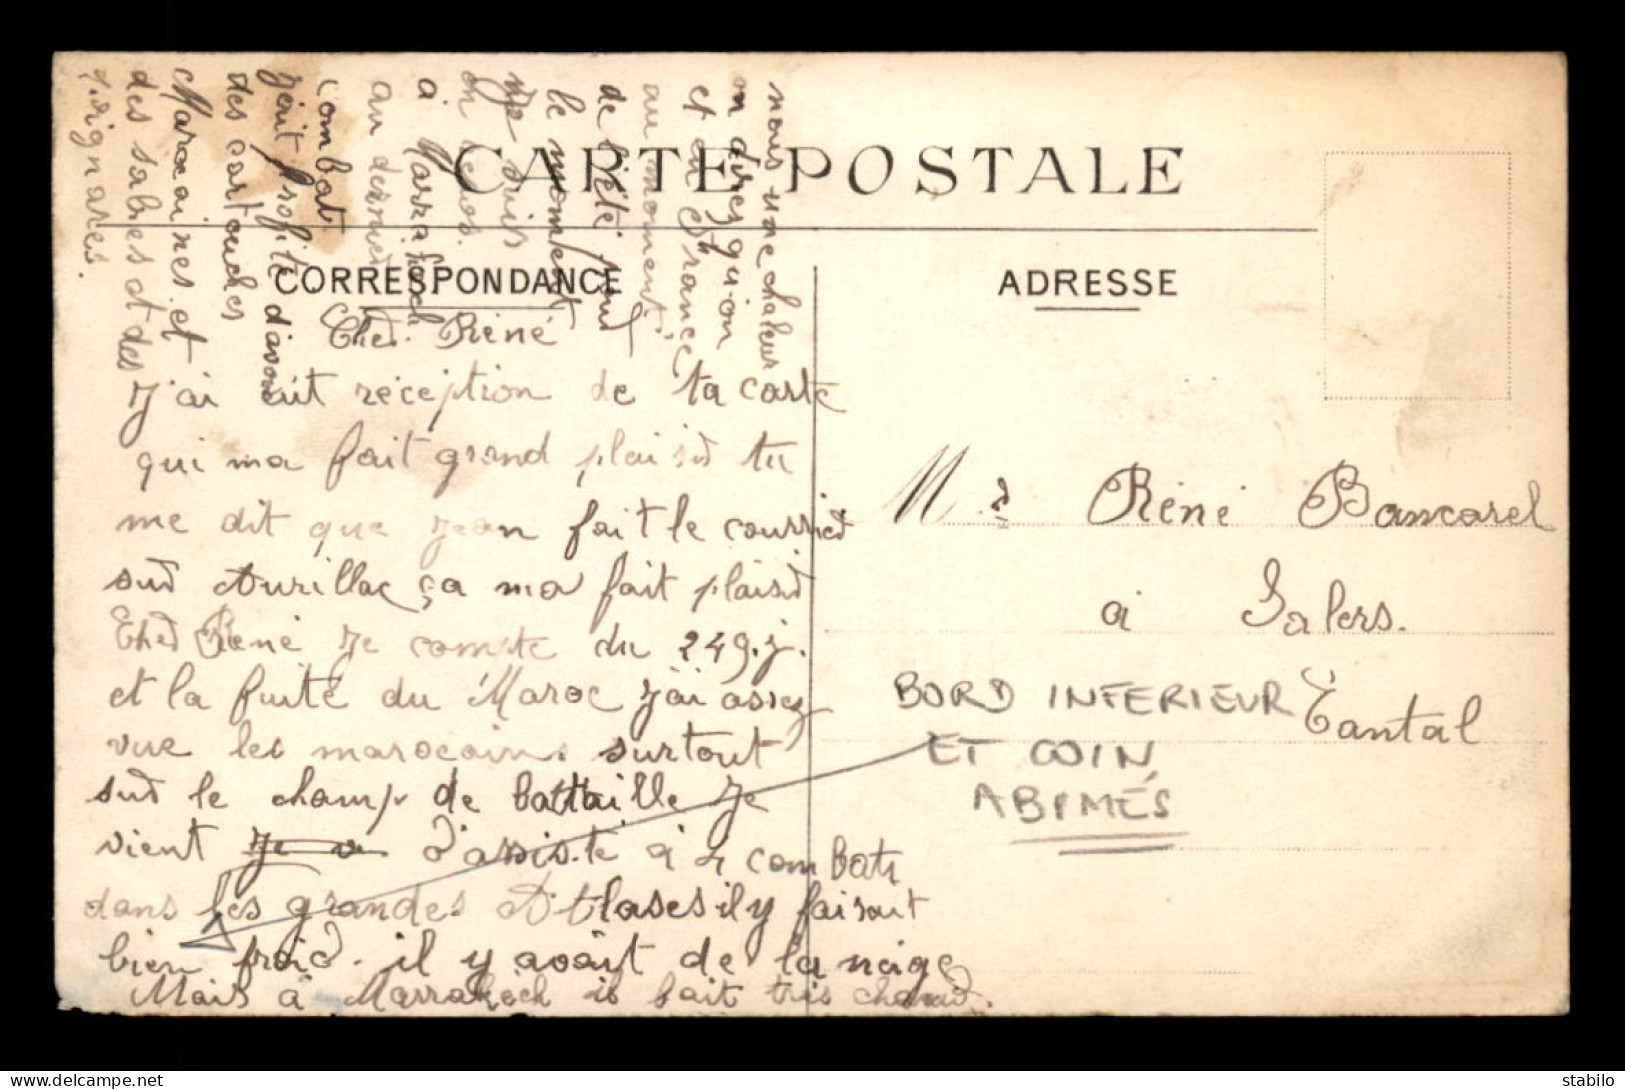 CARTE POSTALE
CORRESPONDANCE
ADRESSE
Cher Réné
J'ai eüt réception de ta carte
qui ma fait grand plaisir tu
me dit que Jean fait le courrier
sur Aurillac ça ma fait plaisir
Cher René Je compte du 249.j.
et la fuite du Maroc J'ai assez
vue les marocains surtout
sur le champ de battaille Je
vient Je d'assiste a 4 combats
dans les grandes Atlases il y faisait
bien froid. il y avait de la neige
Mais à Marrakech il fait tris chaud.
nous une chaleur
on dires qu'on
et en France
au moment
de l'été pour
le moment
Je suis
en repos
à Marrakech
au dernier
combat
J'ait profité d'avoir
des cartouches
Marocaines et
des sabres et des
Poignares.
Mr Réné Bancarel
à Salers.
Cantal
BORD INFERIEUR
ET COIN
ABIMÉS
stabilo